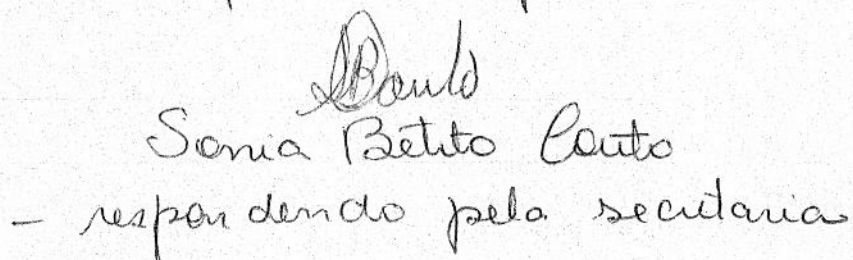 SBCouto
Sonia Betito Couto
- respondendo pela secretaria